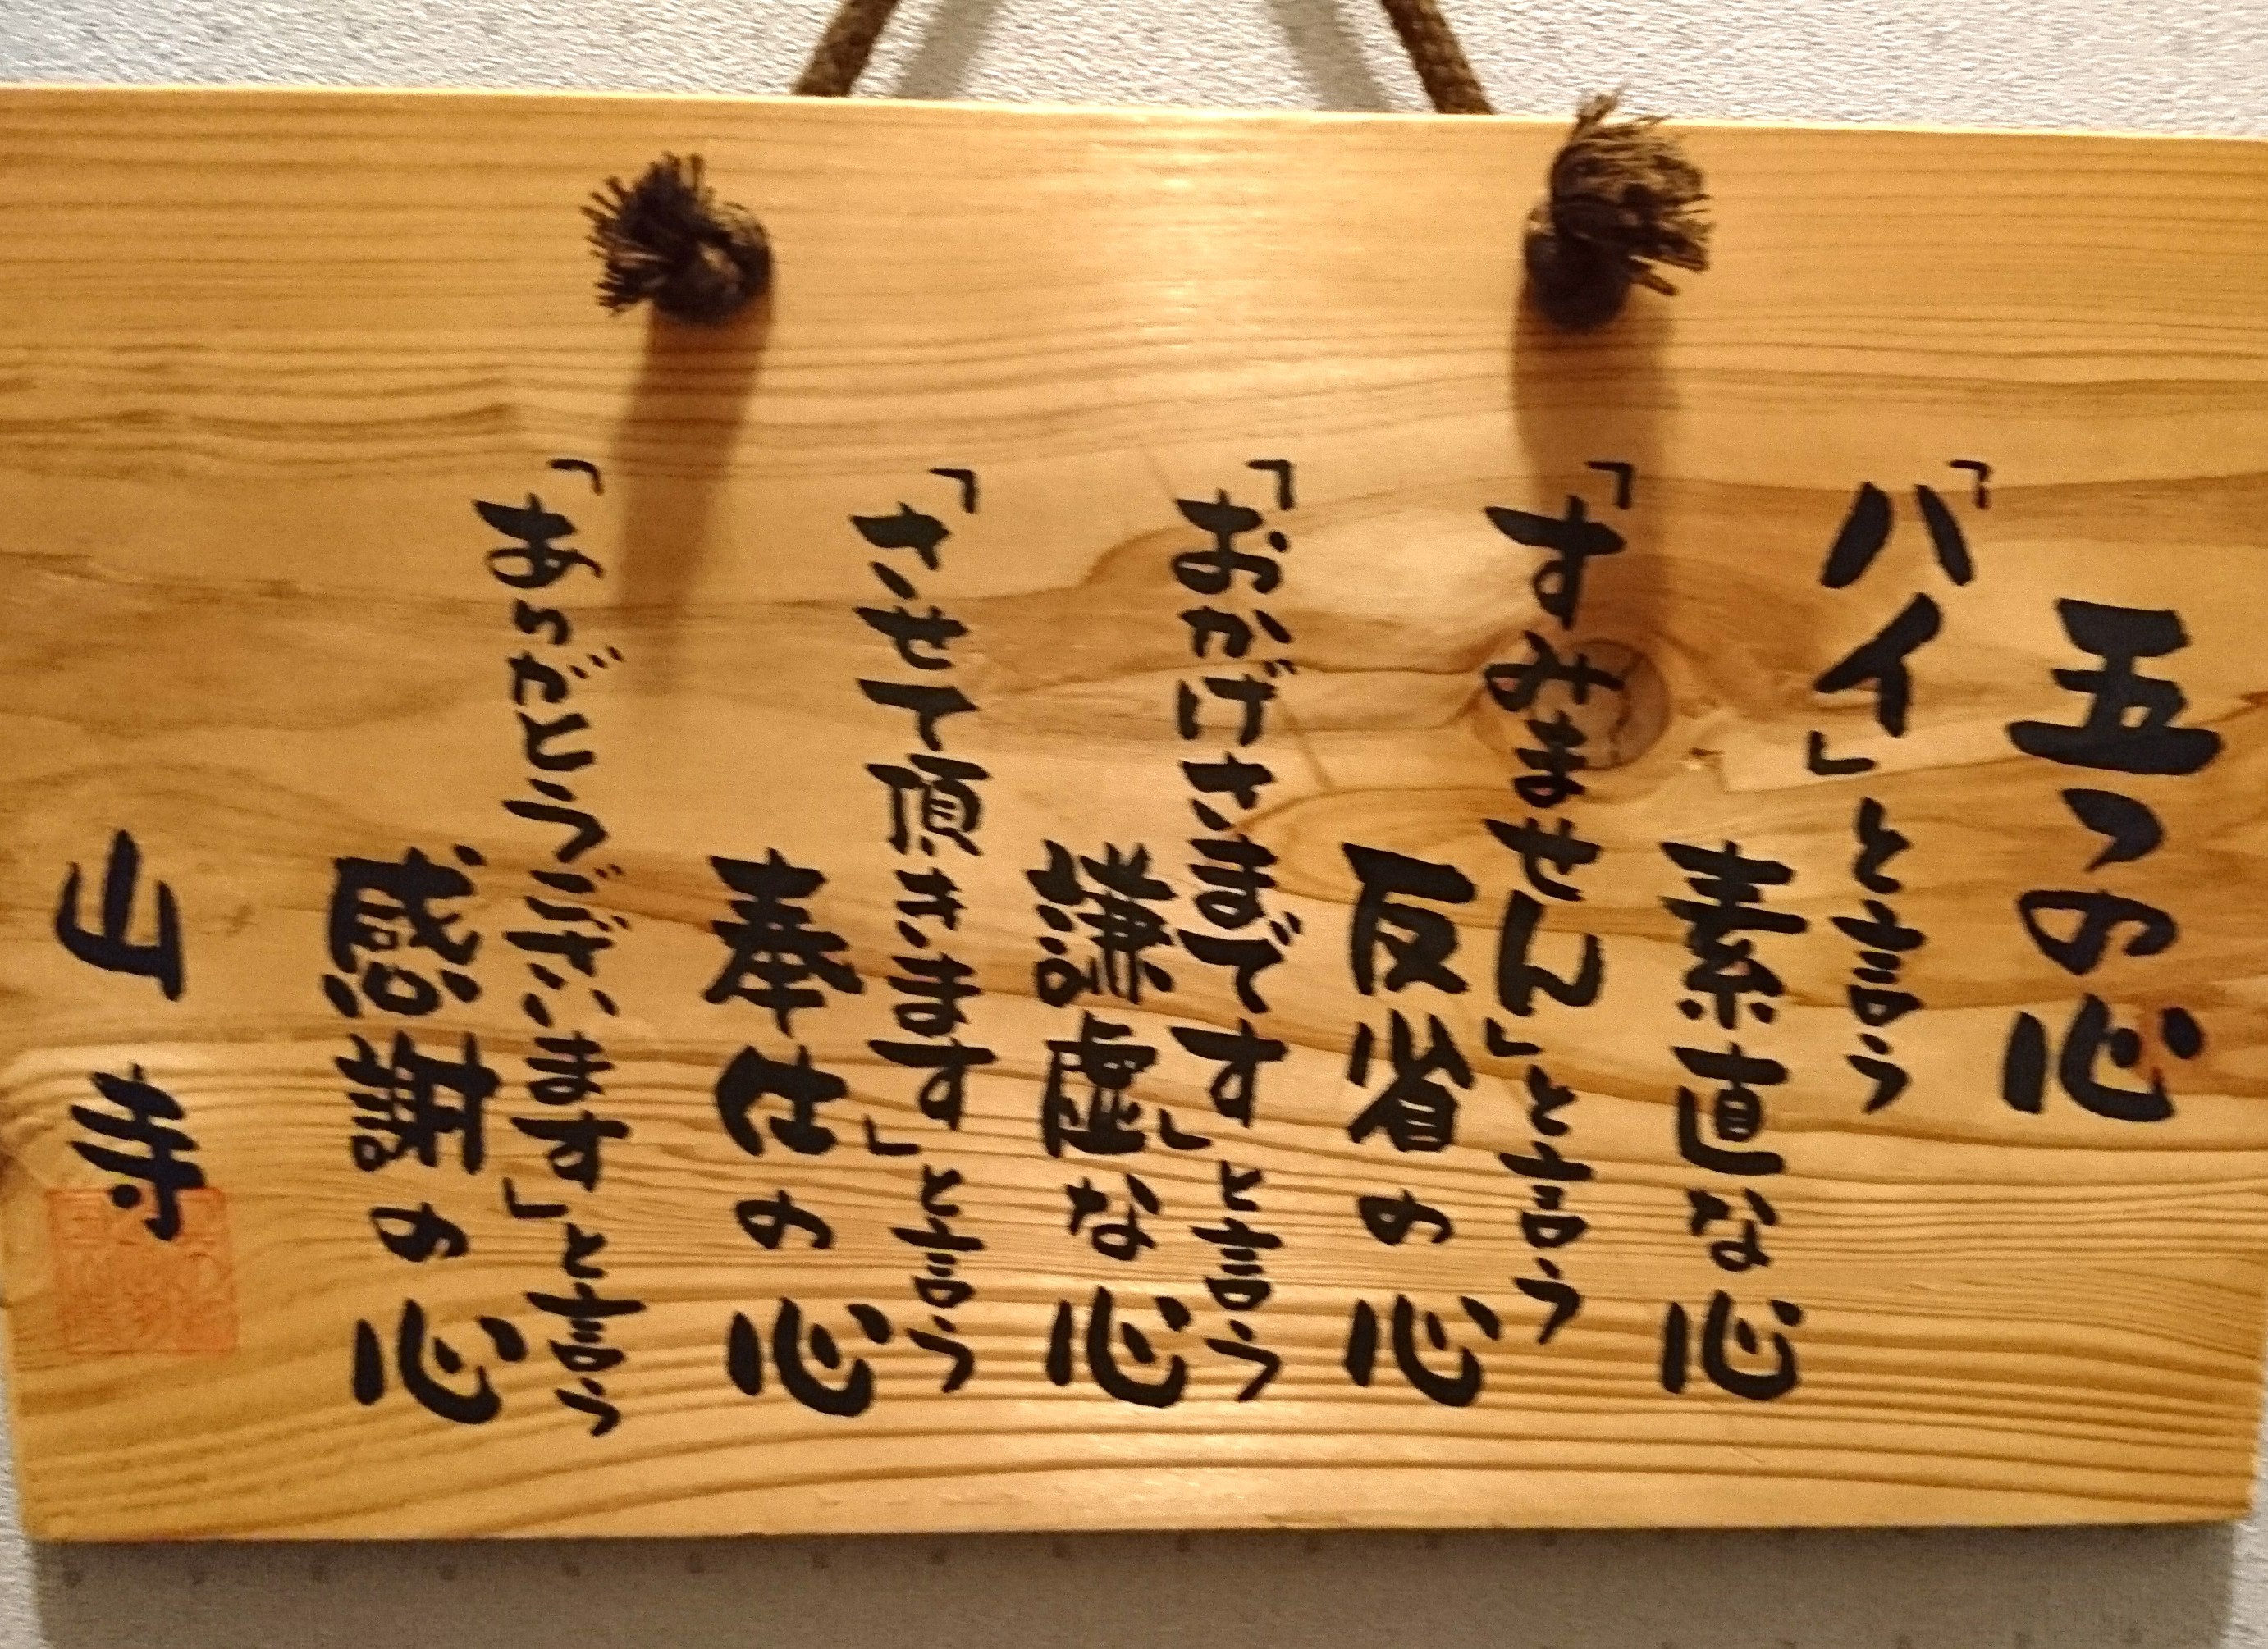 五つの心
「ハイ」と言う
素直な心
「すみません」と言う
反省の心
「おかげさまです」と言う
謙虚な心
「させて頂きます」と言う
奉仕の心
「ありがとうございます」と言う
感謝の心
山寺